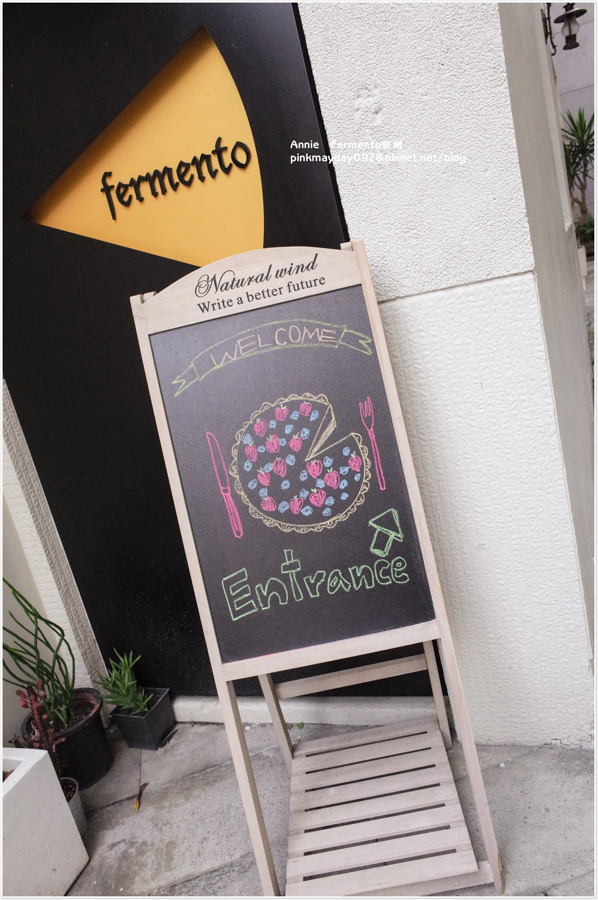 Annie Fermento
pinkmayday0928.pixnet.net/blog
fermento
Natural wind
Write a better future
WELCOME
Entrance